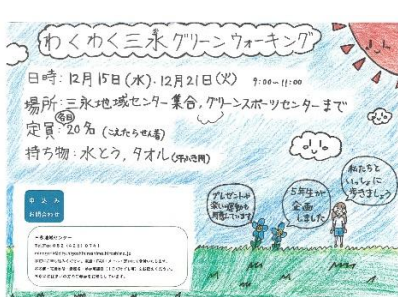 わくわく三永グリーンウォーキング
日時:12月15日(水)・12月21日(火) 9:00~11:00
場所:三永地域センター集合,グリーンスポーツセンターまで
定員:各日20名(こえたらせん着)
持ち物:水とう,タオル(汗ふき用)
申込み
お問合わせ
プレゼントや
楽しい運動も
用意しています
5年生が
企画
しました
私たちと
いっしょに
歩きましょう